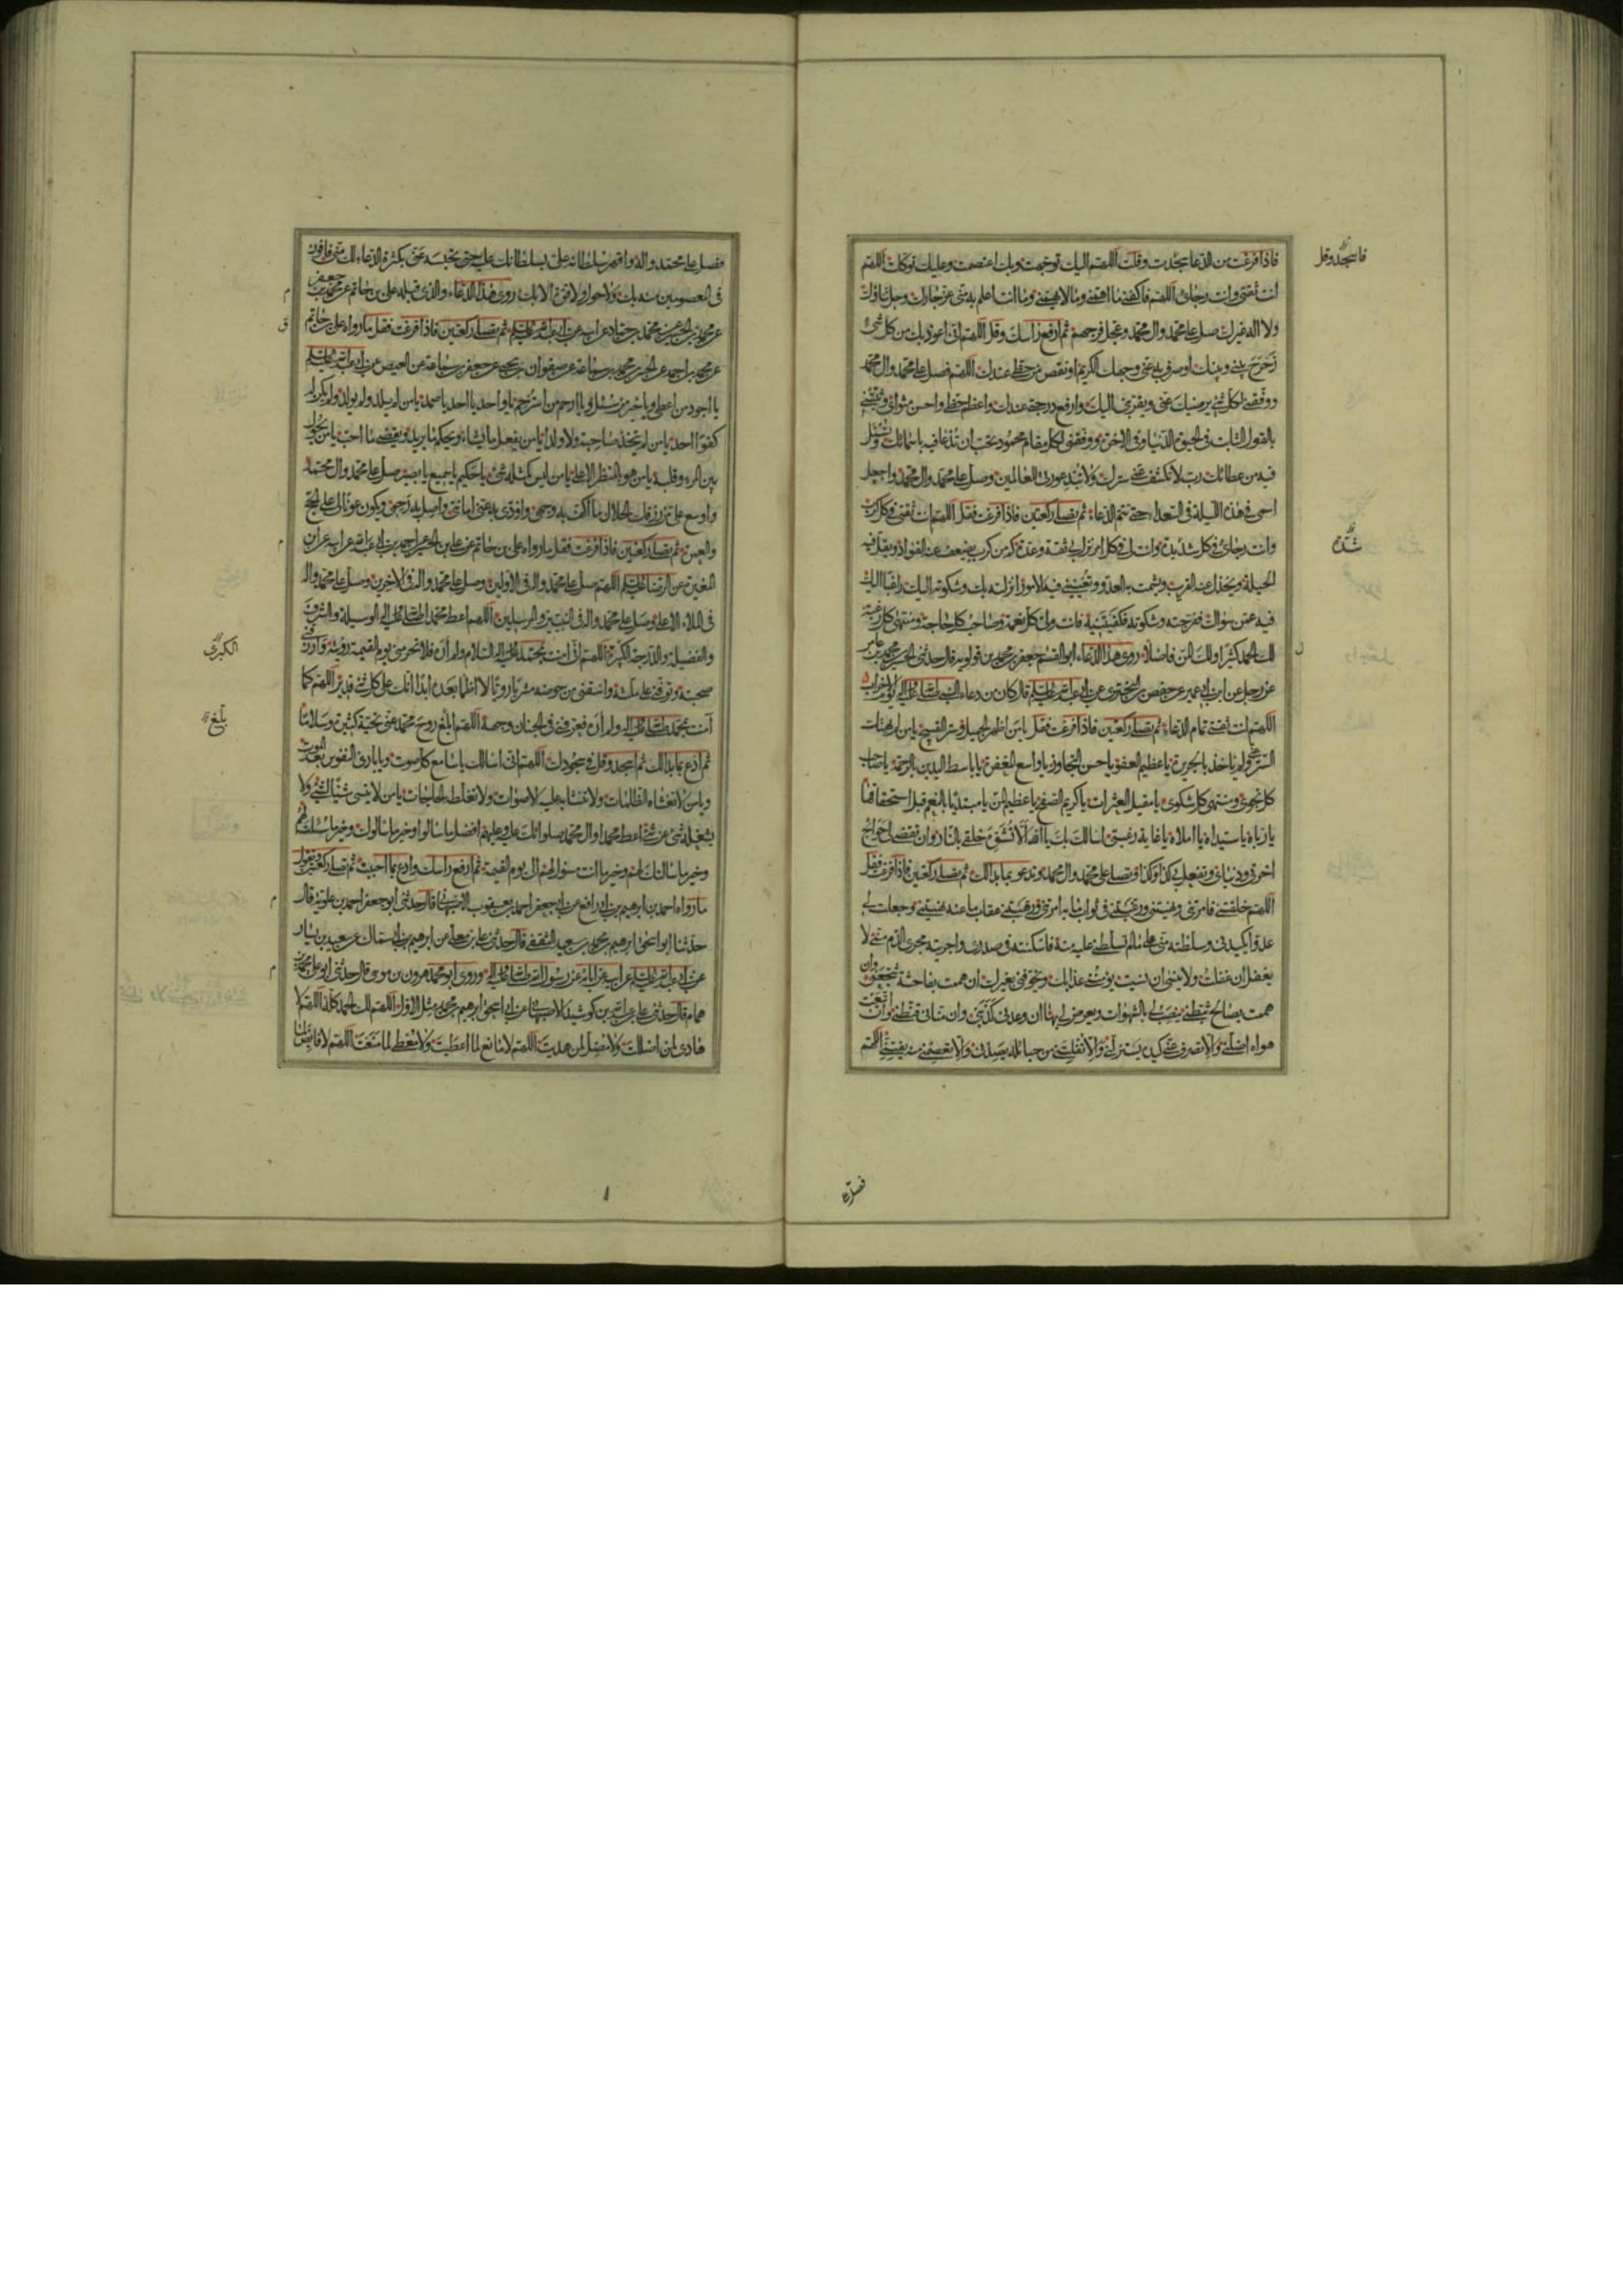 فاذا فرغت من الدعا سجدت وقلت اللهم اليك توجهت وبك اعتصمت وعليك توكلت اللهم
انت ثقتي وانت رجائي اللهم فاكفني ما اهمني وما لا يهمني وما انت اعلم به مني عز جارك وجل ثناؤك
ولا اله غيرك صل على محمد وال محمد وعجل فرجهم ثم ارفع راسك وقل اللهم اني اعوذ بك من كل شئ
زحزح بيني وبينك او صرف به عني وجهك الكريم او نقص من حظي عندك اللهم فصل على محمد وال محمد
ووفقني لكل شئ يرضيك عني ويقربني اليك وارفع درجتي عندك واعظم حظي واحسن مثواي وثبتني
بالقول الثابت في الحيوة الدنيا وفي الاخرة ووفقني لكل مقام محمود تحب ان تدعا فيه باسمائك وتسئل
فيه من عطائك رب لا تكشف عني سترك ولا تبد عورتي للعالمين وصل على محمد وال محمد واجعل
اسمي في هذه الليلة في السعداء حتى تتم الدعاء ثم يصلي ركعتين فاذا فرغت فقل اللهم انت ثقتي في كل كرب
وانت رجائي في كل شديدة وانت لي في كل امر نزل بي ثقة وعدة كم من كرب يضعف عنه الفؤاد وتقل فيه
الحيلة ويخذل عنه القريب ويشمت به العدو وتعييني فيه الامور انزلته بك وشكوته اليك راغبا اليك
فيه عمن سواك ففرجته وشكوته فكفيتنيه فانت ولي كل نعمة وصاحب كل حاجة ومنتهى كل رغبة
لك الحمد كثيرا ولك المن فاضلا روى هذا الدعاء ابو القسم جعفر بن محمد بن قولويه قال حدثني الحسين بن محمد بن عامر
عن رجل عن ابن ابي عمير عن حفص بن البختري عن ابي عبد الله عليه السلم قال كان من دعاء النبي صلى الله عليه واله يوم الاحزاب
اللهم انت ثقتي تمام الدعاء ثم يصلي ركعتين فاذا فرغت فقل يا من اظهر الجميل وستر القبيح يا من لم يهتك
الستر عني ولم ياخذ بالجريرة يا عظيم العفو يا حسن التجاوز يا واسع المغفرة يا باسط اليدين بالرحمة يا صاحب
كل نجوى ومنتهى كل شكوى يا مقيل العثرات يا كريم الصفح يا عظيم المن يا مبتديا بالنعم قبل استحقاقها
يا رباه يا سيداه يا املاه يا غاية رغبتي اسالك بك يا الله الا تشوه خلقي بالنار وان تقضي لي حوائج
اخرتي ودنياي وتفعل بي كذا وكذا وتصلي على محمد وال محمد وتدعو بما بدا لك ثم يصلي ركعتين فاذا فرغت فقل
اللهم خلقتني فامرتني ونهيتني ورغبتني في ثواب ما به امرتني ورهبتني عقاب ما عنه نهيتني وجعلت لي
عدوا يكيدني وسلطته مني على ما لم تسلطني عليه منه فاسكنته في صدري واجريته مجرى الدم مني لا
يغفل ان غفلت ولا ينسى ان نسيت يؤمنني عذابك ويخوفني بغيرك ان هممت بفاحشة شجعني وان
هممت بصالح ثبطني ينصب لي بالشهوات ويعرض لي بها ان وعدني كذبني وان مناني قنطني وان اتبعت
هواه اضلني والا تصرف عني كيده يستزلني والا تفلتني من حبائله يصدني والا تعصمني منه يفتني اللهم
فاسجد وقل
شدة
ل
فصل
فصل على محمد واله واقهر سلطانه علي بسلطانك عليه حتى تحبسه عني بكثرة الدعاء لك مني فافوز
في المعصومين منه بك ولا حول ولا قوة الا بك روى هذا الدعاء والذي قبله علي بن حاتم عن محمد بن جعفر
عن ابيه عن ابي عبد الله عليه السلم ثم يصلي ركعتين فاذا فرغت فقل ما رواه علي بن حاتم
عن محمد بن احمد عن الحسن بن محمد بن سماعة عن صفوان بن يحيى عن جعفر بن سماعة عن العيص عن ابي عبد الله عليه السلم
يا اجود من اعطى ويا خير من سئل ويا ارحم من استرحم يا واحد يا احد يا صمد يا من لم يلد ولم يولد ولم يكن له
كفوا احد يا من لم يتخذ صاحبة ولا ولدا يا من يفعل ما يشاء ويحكم ما يريد ويقضي ما احب يا من يحول
بين المرء وقلبه يا من هو بالمنظر الاعلى يا من ليس كمثله شئ يا حكيم يا سميع يا بصير صل على محمد وال محمد
واوسع علي من رزقك الحلال ما اكف به وجهي واؤدي به عني امانتي واصل به رحمي ويكون عونا لي على الحج
والعمرة ثم يصلي ركعتين فاذا فرغت فقل ما رواه علي بن حاتم عن علي بن الحسين عن احمد بن ابي عبد الله عن ابيه عن ابن
المغيرة عن الرضا عليه السلم اللهم صل على محمد واله في الاولين وصل على محمد واله في الاخرين وصل على محمد واله
في الملاء الاعلى وصل على محمد واله في النبيين والمرسلين اللهم اعط محمدا صلى الله عليه واله الوسيلة والشرف
والفضيلة والدرجة الكبيرة اللهم اني امنت بمحمد عليه واله السلام ولم اره فلا تحرمني يوم القيمة رؤيته وارزقني
صحبته وتوفني على ملته واسقني من حوضه مشربا رويا لا اظما بعده ابدا انك على كل شئ قدير اللهم كما
امنت بمحمد صلى الله عليه واله ولم اره فعرفني في الجنان وجهه اللهم ابلغ روح محمد عني تحية كثيرة وسلاما
ثم ادع بما بدا لك ثم اسجد وقل في سجودك اللهم اني اسالك يا سامع كل صوت ويا بارئ النفوس بعد الموت
ويا من لا تغشاه الظلمات ولا تتشابه عليه الاصوات ولا تغلطه الحاجات يا من لا ينسى شيئا لشئ ولا
يشغله شئ عن شئ اعط محمدا وال محمد صلواتك عليه وعليهم افضل ما سالوا وخير ما سالوك وخير ما سئلت لهم
وخير ما سالتك لهم وخير ما انت مسئول لهم الى يوم القيمة ثم ارفع راسك وادع بما احببت ثم تصلي ركعتين وتقول
ما رواه احمد بن ابراهيم بن ابي رافع عن ابي جعفر احمد بن يعقوب الاصفهاني قال حدثني ابو جعفر احمد بن علوية قال
حدثنا ابو اسحق ابرهيم بن محمد بن سعيد الثقفي قال حدثني علي بن معلى عن ابرهيم بن ابي سمال عن سعيد بن يسار
عن ابي عبد الله عليه السلم عن ابيه عن ابائه عن رسول الله صلى الله عليه واله وروى ابو محمد هرون بن موسى قال حدثني ابو علي محمد بن
همام قال حدثني علي بن عبد الله بن كوشيد الاصبهاني عن ابي اسحق ابرهيم بن محمد مثل الاول اللهم لك الحمد كله اللهم لا
هادي لمن اضللت ولا مضل لمن هديت اللهم لا مانع لما اعطيت ولا معطي لما منعت اللهم لا قابض لما
م
ق
م
الكبرى
بلغ
م
م